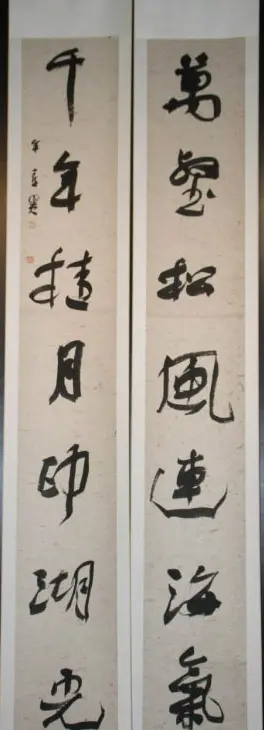 萬壑松風連海氣
千年月印湖光